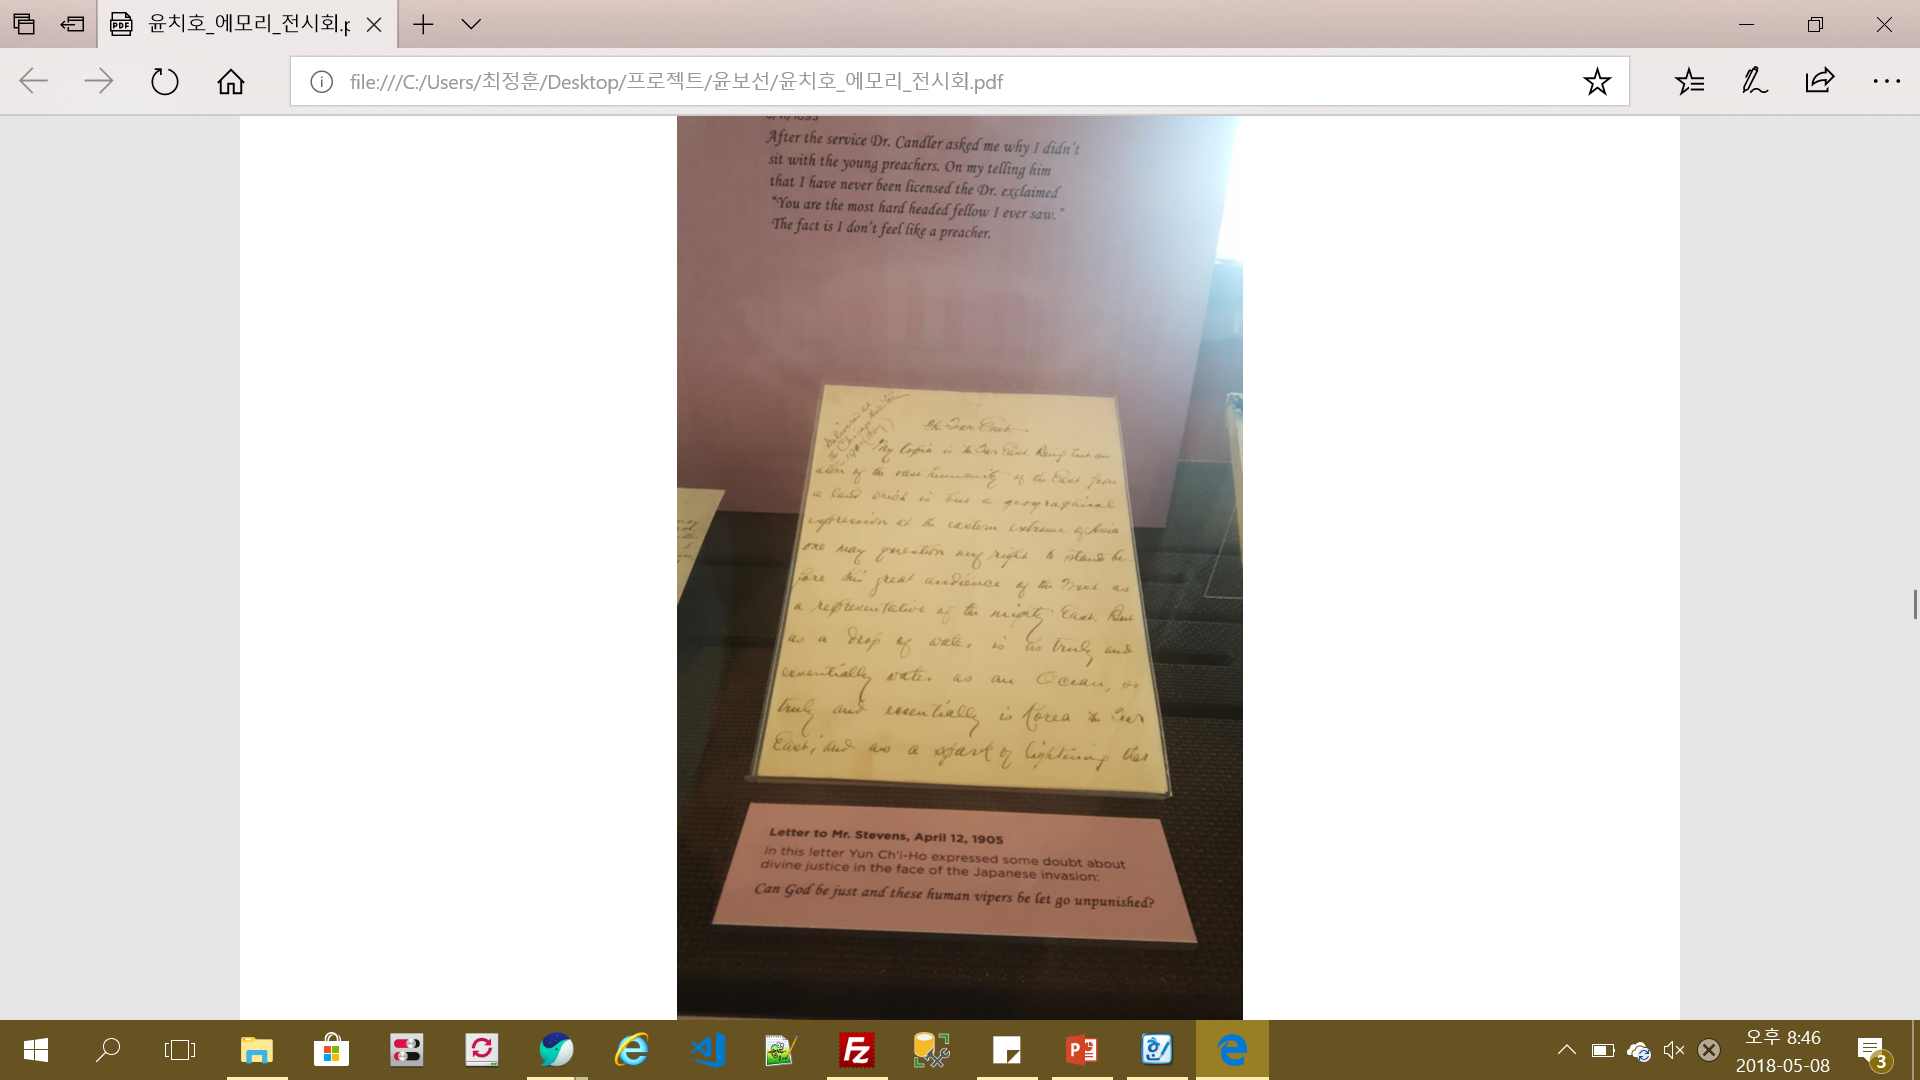 윤치호_에모리_전시회.p
file:///C:/Users/최정훈/Desktop/프로젝트/윤보선/윤치호_에모리_전시회.pdf
After the service Dr. Candler asked me why I didn't
sit with the young preachers. On my telling him
that I have never been licensed the Dr. exclaimed
"You are the most hard headed fellow I ever saw."
The fact is I don't feel like a preacher.
Delivered at
Chicago Auditorium
The Far East.
My topic is the Far East. Being but an
atom of the vast humanity of the East from
a land which is but a geographical
expression at the eastern extreme of Asia
one may question my right to stand be-
fore this great audience of the West as
a representative of the mighty East. But
as a drop of water is as truly and
essentially water as an Ocean, so
truly and essentially is Korea the Far
East; and as a spark of lightning that
Letter to Mr. Stevens, April 12, 1905
In this letter Yun Ch'i-Ho expressed some doubt about
divine justice in the face of the Japanese invasion:
Can God be just and these human vipers be let go unpunished?
오후 8:46
2018-05-08
3